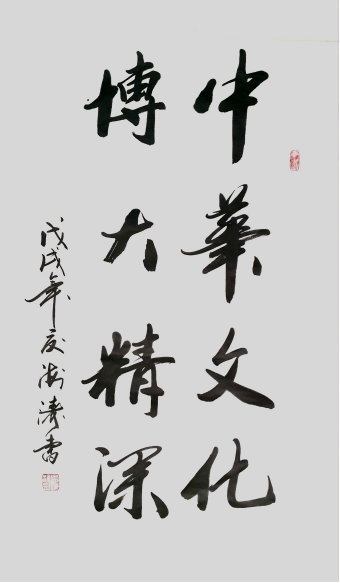 中華文化
博大精深
戊戌年夏海濤書